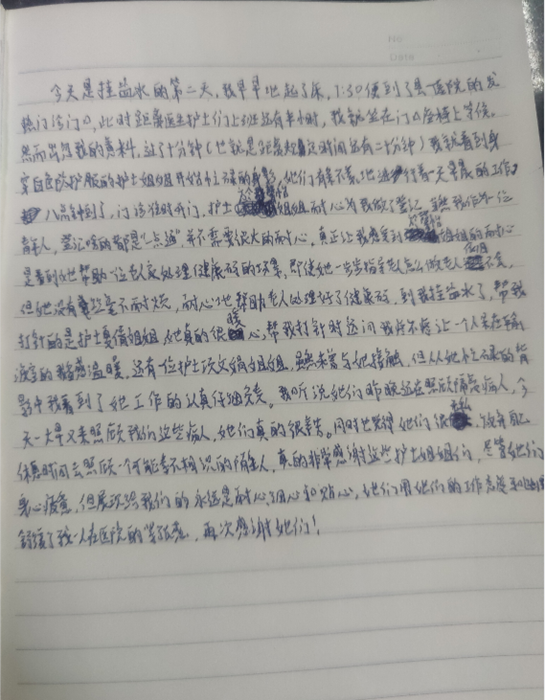 No
Date
今天是挂盐水的第二天，我早早地起了床，1:30便到了县医院的发
热门诊门口，此时距离医生护士们上班还有半小时，我就坐在门口座椅上等候。
然而出乎我的意料，过了十分钟（也就是距离规定时间还有二十分钟）我就看到身
穿白色防护服的护士姐姐开始忙碌的身影，她们有条不紊地进行着一天要展的工作。
八点钟到了，门诊准时开门，护士姐姐耐心为我做了登记，虽然我作为一位
青年人，登记啥的都是“一点通”并不需要很大的耐心，真正让我感受到姐姐的耐心
是看到她帮助一位老人家处理健康码的场景，即使她一步步指导老人怎么做老人仍旧不会，
但她没有露出毫不耐烦，耐心地帮助老人处理好了健康码，到我挂盐水了，帮我
打针的是护士夏倩姐姐，她真的很暖心，帮我打针时还问我好不好让一个人呆在输
液室的我倍感温暖，还有一位护士汝文娟姐姐，虽未曾与她接触，但从她忙碌的背
影中我看到了她工作的认真仔细负责。我听说她们昨晚还在照顾隔离病人，今
天一大早又来照顾我们这些病人，她们真的很辛苦。同时也觉得她们很，牺牲自己
休息时间去照顾一个可能素不相识的陌生人，真的非常感谢这些护士姐姐们，尽管她们
身心疲惫，但展现给我们的永远是耐心、细心和贴心，她们用她们的工作态度和
缓了我一人在医院的紧张，再次感谢她们！